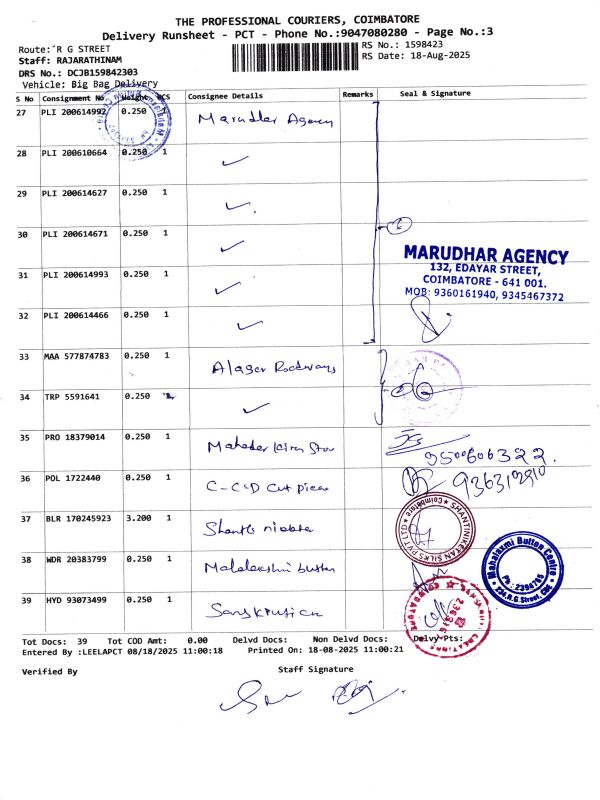 THE PROFESSIONAL COURIERS, COIMBATORE
Delivery Runsheet - PCT - Phone No.:9047080280 - Page No.:3
Route: R G STREET
RS No.: 1598423
Staff: RAJARATHINAM
RS Date: 18-Aug-2025
DRS No.: DCJB159842303
Vehicle: Big Bag Delivery
S No Consignment No Weight PCS Consignee Details Remarks Seal & Signature
27 PLI 200614992 0.250 Marudhar Agency
28 PLI 200610664 0.250 1 ✓
29 PLI 200614627 0.250 1 ✓
30 PLI 200614671 0.250 1 ✓
31 PLI 200614993 0.250 1 ✓
32 PLI 200614466 0.250 1 ✓
MARUDHAR AGENCY
132, EDAYAR STREET,
COIMBATORE - 641 001.
MOB: 9360161940, 9345467372
33 MAA 577874783 0.250 1 Alager Roadways
34 TRP 5591641 0.250 ✓
35 PRO 18379014 0.250 1 Mahadev Kiran Stor
36 POL 1722440 0.250 1 C-CSD Cut piece
37 BLR 170245923 3.200 1
SHANTINIKETAN SILKS PVT LTD
Coimbatore
38 WDR 20383799 0.250 1
Mahalaxmi Button Centre
Ph : 2396745
234, R.G. Street, CBE
39 HYD 93073499 0.250 1 Sanskruti
COIMBATORE
Tot Docs: 39 Tot COD Amt: 0.00 Delvd Docs: Non Delvd Docs: Delvy Pts:
Entered By :LEELAPCT 08/18/2025 11:00:18 Printed On: 18-08-2025 11:00:21
Verified By
Staff Signature